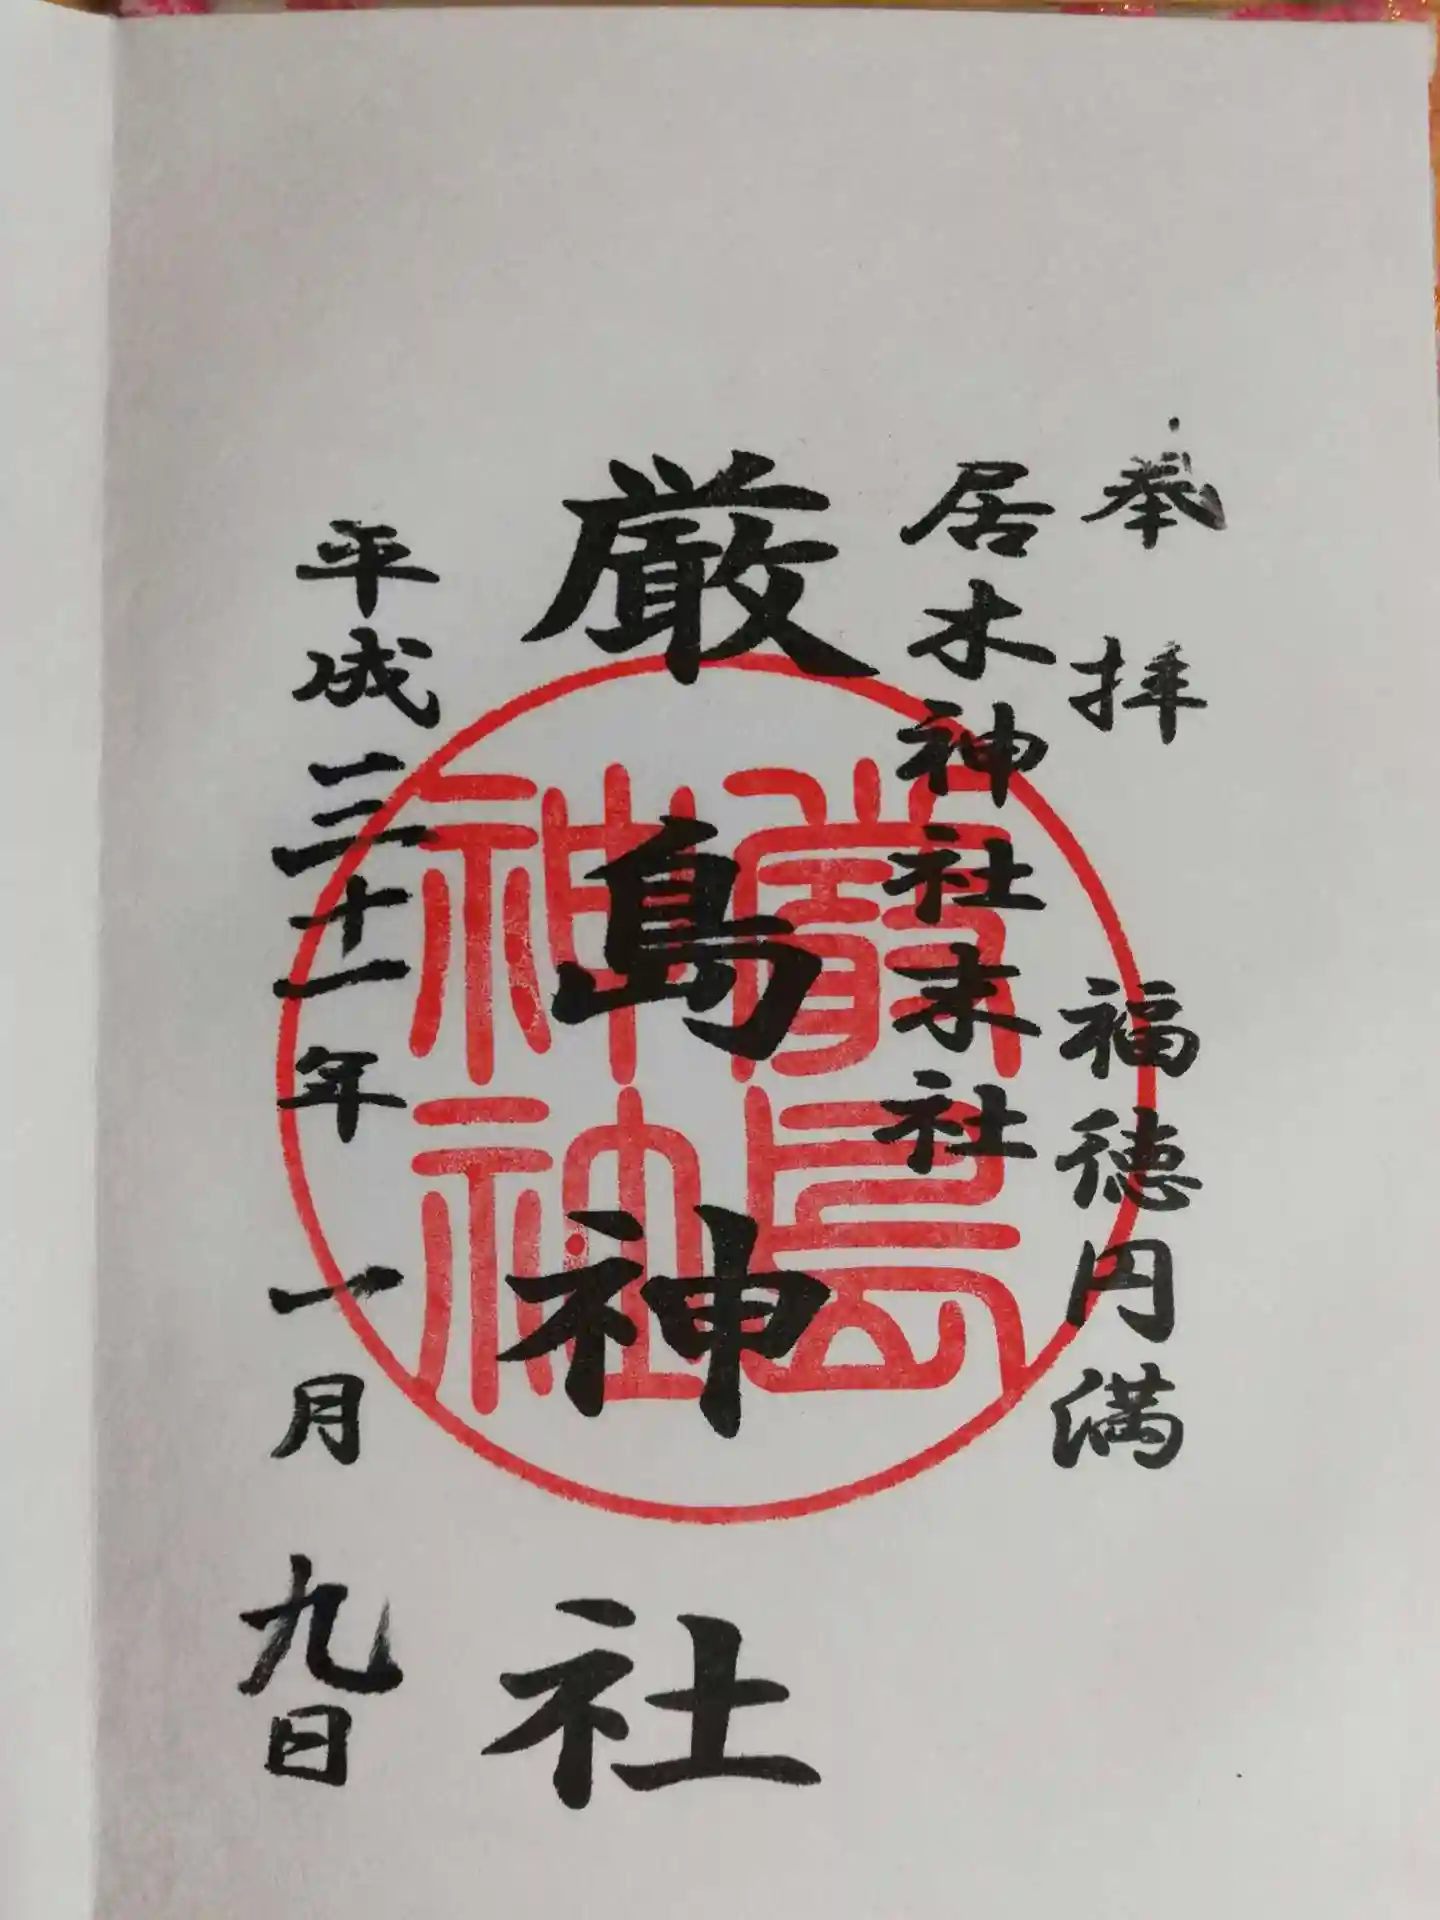 奉拝　福徳円満
居木神社末社
厳島神社
平成三十一年一月九日
嚴島
神社